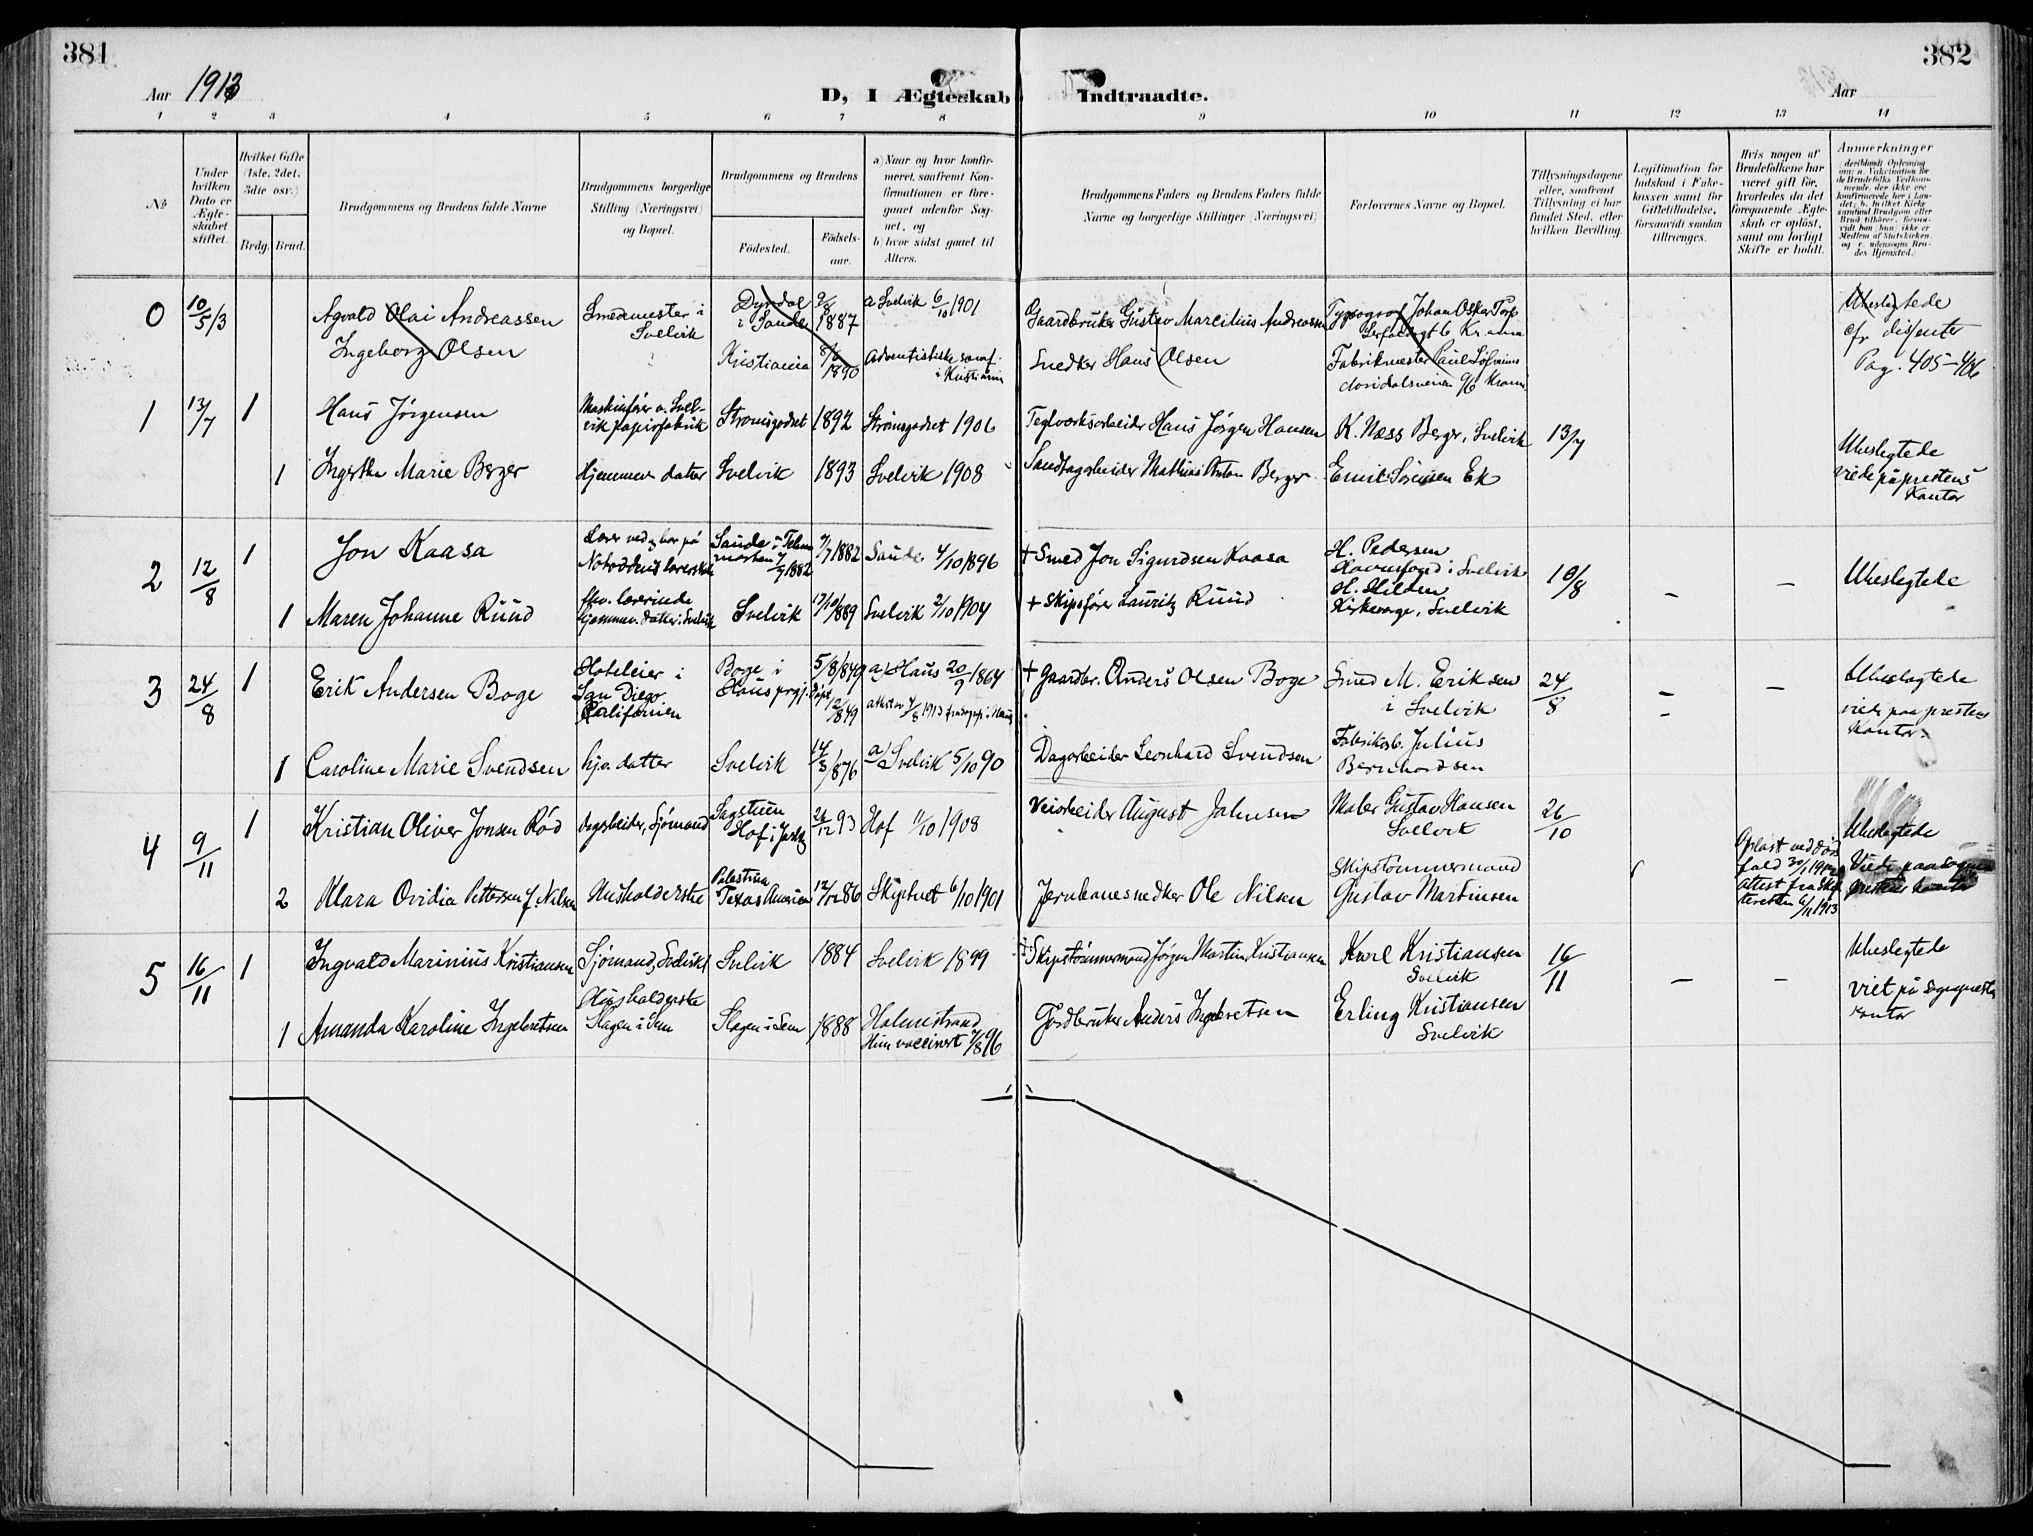 381
382
Aar 1913
D, I Ægteskab Indtraadte.
Aar
1 2 3 4 5 6 7 8 9 10 11 12 13 14
No
Under hvilken Dato er Ægteskabet stiftet.
Hvilket Gifte (1ste, 2det, 3die osv.)
Brdg. Brud.
Brudgommens og Brudens fulde Navne
Brudgommens borgerlige Stilling (Næringsvei) og Bopæl.
Brudgommens og Brudens
Fødested.
Fødselsaar.
a) Naar og hvor konfirmeret, saafremt Konfirmationen er foregaaet udenfor Sognet, og
b) hvor sidst gaaet til Alters.
Brudgommens Faders og Brudens Faders fulde Navne og borgerlige Stillinger (Næringsvei)
Forlovernes Navne og Bopæl.
Tillysningsdagene eller, saafremt Tillysning ei har fundet Sted, efter hvilken Bevilling.
Legitimation for Indskud i Enkekassen samt for Giftetilladelse, forsaavidt saadan tiltrænges.
Hvis nogen af Brudefolkene har været gift før, hvorledes da det foregaaende Ægteskab er opløst, samt om lovligt Skifte er holdt.
Anmerkninger
0 10/5/3
Agvald Olai Andreassen
Smedemester i Svelvik
Dyrdal i Sande
9/8 1887
a Svelvik 6/10 1901
Gaardbruker Gustav Marcilius Andreassen
Typograf Johan Oskar
Ubeslegtede
cfr dissenter
Pag. 405-406
Ingeborg Olsen
Kristiania
8/6 1890
Adventistiske samf. i Kristiania
Snedker Hans Olsen
Fabrikmester Paul
1 13/7 1
Hans Jørgensen
Maskinfører v. Svelvik papirfabrik
Strømsgodset
1892
Strømsgodset 1906
Teglverksarbeider Hans Jørgen Hansen
K. Næss Berger, Svelvik
13/7
Ubeslegtede
viede på prestens
Kontor
1
Marie Berger
Hjemmev. datter
Svelvik
1893
Svelvik 1908
Mathias Anton Berger
Emil Sørensen Ek
2 12/8 1
Jon Kaasa
Lærer ved og bor på
Notodden
Saude i Telemarken 4/7 1882
4/7 1882
Saude 4/10 1896
+ Smed Jon Sigurdsen Kaasa
H. Pedersen
Havnefoged i Svelvik
H. Hilden
Kirkesanger, Svelvik
10/8
-
-
Ubeslegtede
1
Maren Johanne Ruud
fhv. lærerinde
hjemmev. datter i Svelvik
Svelvik
17/10/889
Svelvik 2/10 1904
+ Skipsfører Lauritz Ruud
3 24/8 1
Erik Andersen Boge
Hoteleier i
San Diego
Californien
Boge i
Haus prgj.
5/8/849
døpt 12/8 849
a) Haus 20/9 1864
attest av 7/8 1913 fra sogp. i Haus
+ Gaardbr. Anders Olsen Boge
Smed M. Eriksen
i Svelvik
24/8
-
-
-
Ubeslægtede
viede paa prestens
Kontor.
1
Caroline Marie Svendsen
hjv. datter
Svelvik
14/3/876
a) Svelvik 5/10 90
Dagarbeider Leonhard Svendsen
Fabrikarb. Julius
Bernhardsen
4 9/11 1
Kristian Oliver Jonsen Rød
Dagarbeider, Sjømand
Sagstuen
Hof i Jarlsb.
26/12 93
Hof 11/10 1908
Veiarbeider August Johnsen
Maler Gustav Hansen
Svelvik
26/10
Opløst ved døds
fald 30/1 1912
Attest fra Skif
teretten 6/11 1913
Ubeslegtede
Viede paa sogne
prestens kontor
2
Klara Ovidia Pettersen f. Nilsen
Husholderske
Palestina
Texas Amerika
12/12 86
Skiptvet 6/10 1901
Jernbanesnedker Ole Nilsen
Skipstømmermand
Gustav Martinsen
5 16/11 1
Ingvald Marinius Kristiansen
Sjømand, Svelvik
Svelvik
1884
Svelvik 1899
+ Skipstømmermand Jørgen Martin Kristiansen
Karl Kristiansen
Svelvik
16/11
-
-
Ubeslegtede
viet på sogneprestens
kontor
1
Amanda Karoline Ingebretsen
Husholderske
Slagen i Sem
Slagen i Sem
1888
Holmestrand
Hun vaccinert 7/8 96
Jordbruker Anders Ingebretsen
Erling Kristiansen
Svelvik